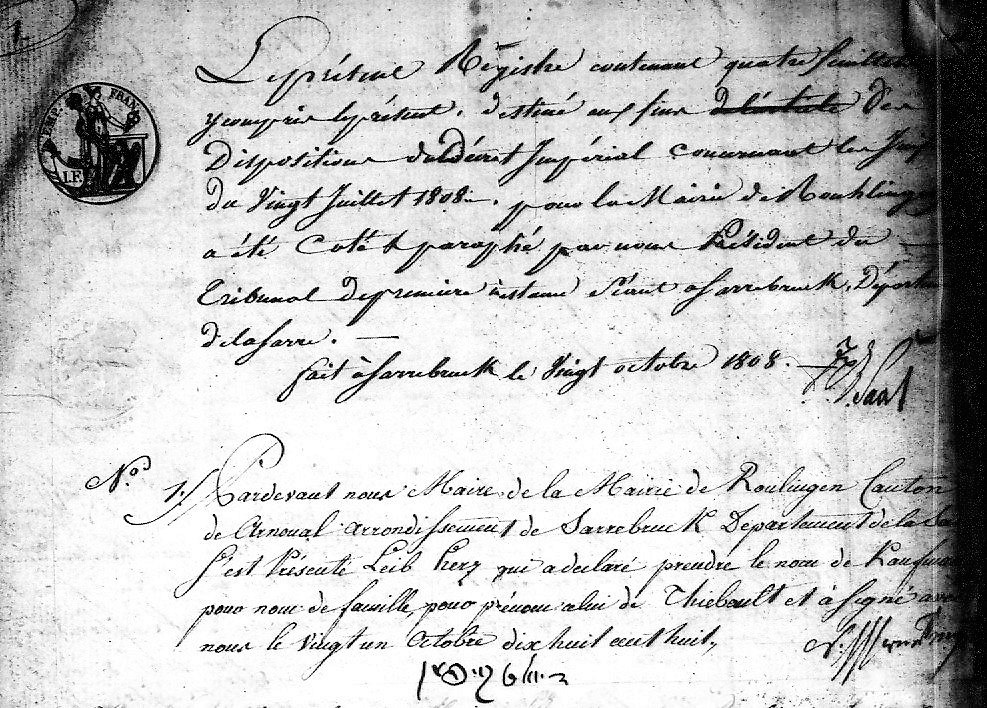 1.
EMP. FRANC.
Le présent Régistre contenant quatre feuilles
y compris le présent. destiné aux fins des
Dispositions du Décret Impérial concernant les Juifs
du Vingt Juillet 1808. pour la Mairie de
a été Coté & paraphé par nous Président du
Tribunal de premiere instance Séant a Sarrebruck, Départ
de la Sarre.
fait à Sarrebruck le Vingt octobre 1808.
N.o 1. Pardevant nous Maire de la Mairie de Roulingen Canton
de Arnoual arrondissement de Sarrebruck Departement de la Sa
s'est Présenté Leib herz qui a declaré prendre le nom de Kaufm
pour nom de famille, pour prénom a lui de Thiebault et à signé av
nous le vingt un Octobre dix huit cent huit,